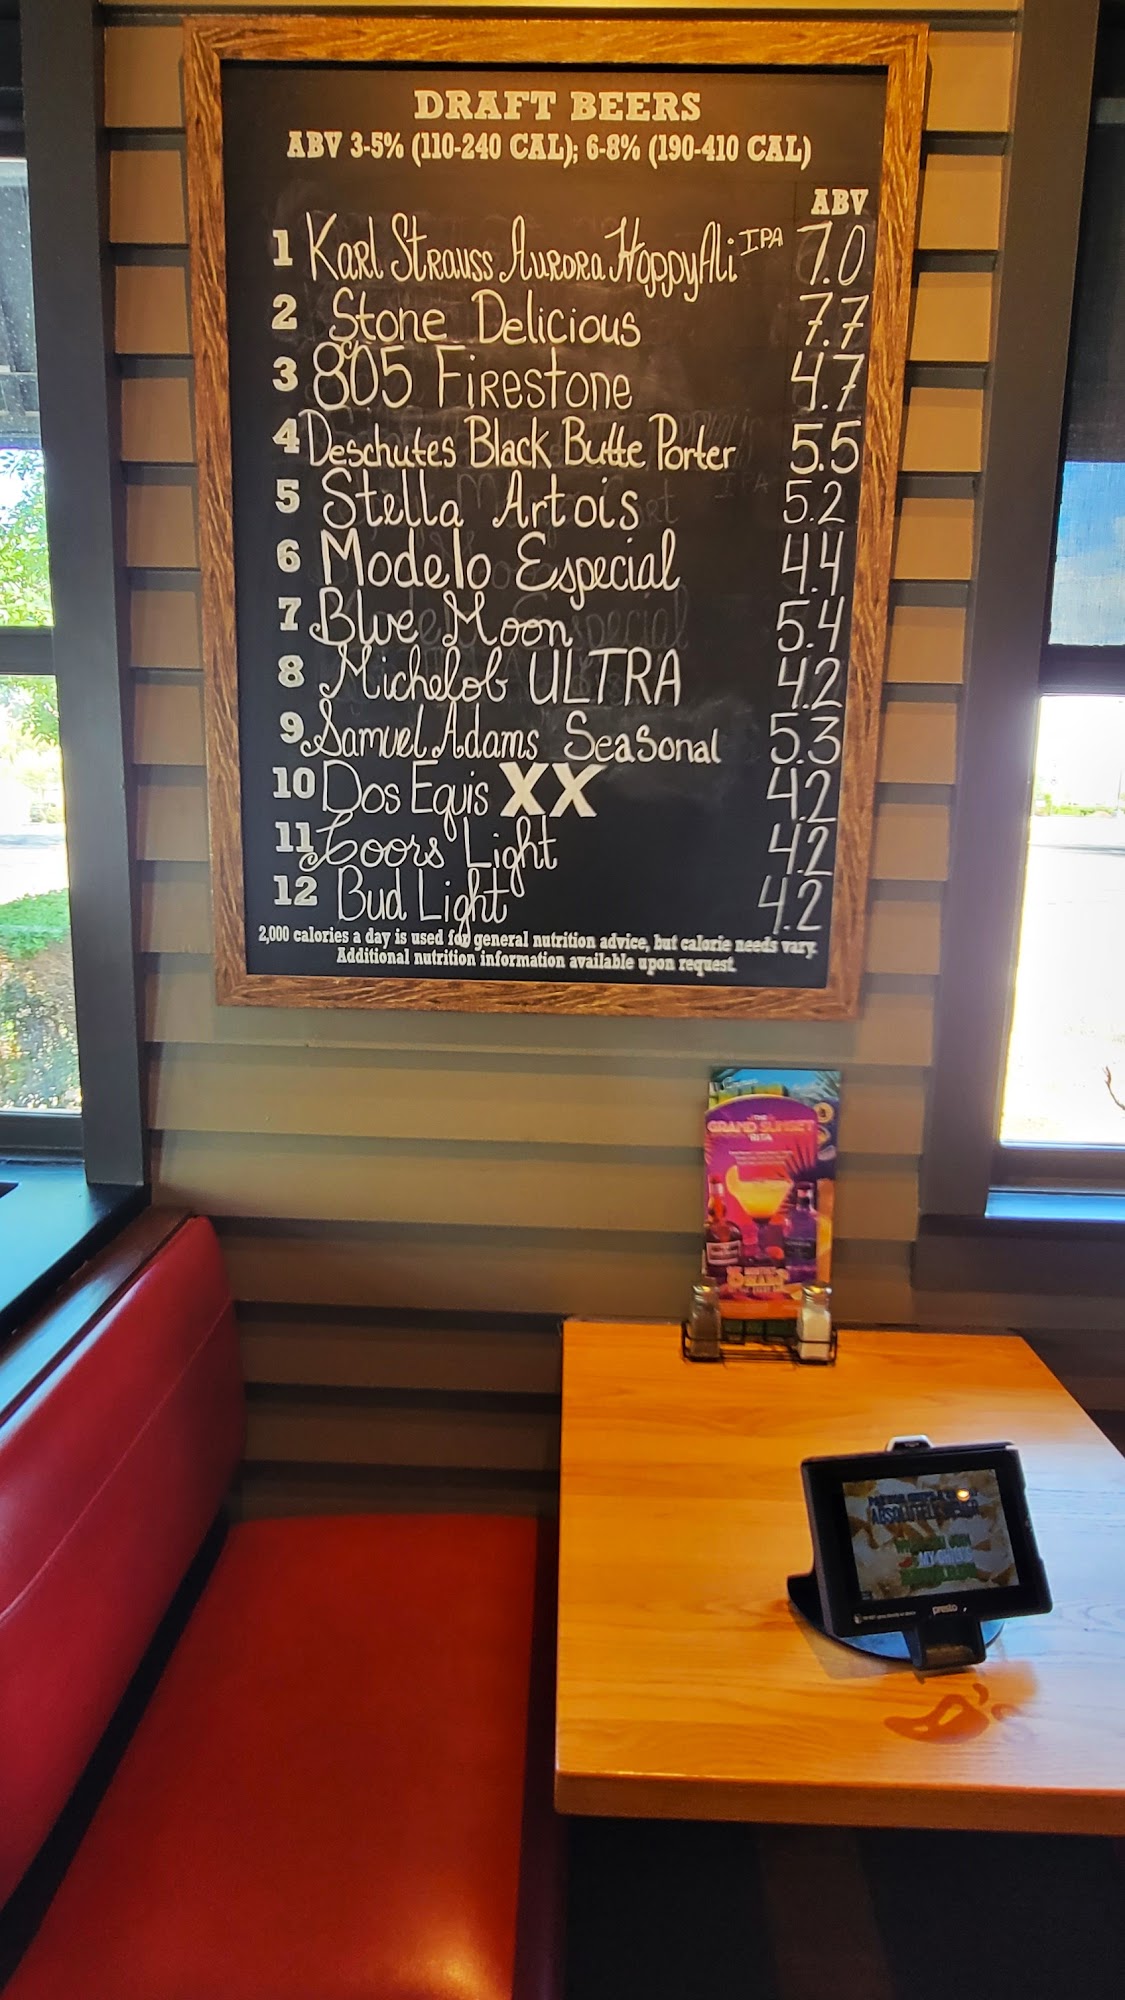 DRAFT BEERS
ABV 3-5% (110-240 CAL); 6-8% (190-410 CAL)
ABV
1 Karl Strauss Aurora HoppyAli IPA 7.0
2 Stone Delicious 7.7
3 805 Firestone 4.7
4 Deschutes Black Butte Porter 5.5
5 Stella Artois 5.2
6 Modelo Especial 4.4
7 Blue Moon 5.4
8 Michelob ULTRA 4.2
9 Samuel Adams Seasonal 5.3
10 Dos Equis XX 4.2
11 Coors Light 4.2
12 Bud Light 4.2
2,000 calories a day is used for general nutrition advice, but calorie needs vary.
Additional nutrition information available upon request.
THE
GRAND SUNSET
RITA
presto